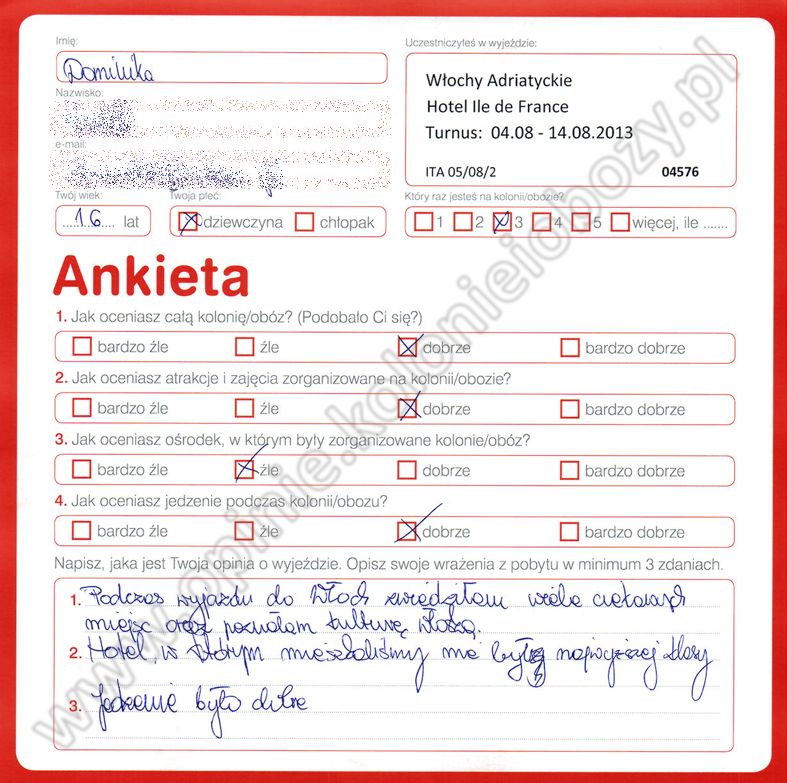 Imię:
Dominika
Uczestniczyłeś w wyjeździe:
Włochy Adriatyckie
Hotel Ile de France
Turnus: 04.08 - 14.08.2013
ITA 05/08/2 04576
Nazwisko:
e-mail:
Twój wiek:
16 lat
Twoja płeć:
dziewczyna chłopak
Który raz jesteś na kolonii/obozie?
1 2 3 4 5 więcej, ile .......
Ankieta
1. Jak oceniasz całą kolonię/obóz? (Podobało Ci się?)
bardzo źle źle dobrze bardzo dobrze
2. Jak oceniasz atrakcje i zajęcia zorganizowane na kolonii/obozie?
bardzo źle źle dobrze bardzo dobrze
3. Jak oceniasz ośrodek, w którym były zorganizowane kolonie/obóz?
bardzo źle źle dobrze bardzo dobrze
4. Jak oceniasz jedzenie podczas kolonii/obozu?
bardzo źle źle dobrze bardzo dobrze
Napisz, jaka jest Twoja opinia o wyjeździe. Opisz swoje wrażenia z pobytu w minimum 3 zdaniach.
1. Podczas wyjazdu do Włoch zwiedziłam wiele ciekawych
miejsc oraz poznałam kulturę włoską.
2. Hotel, w którym mieszkaliśmy nie był najwyższej klasy
3. Jedzenie było dobre
www.opinie.kolonieiobozy.pl